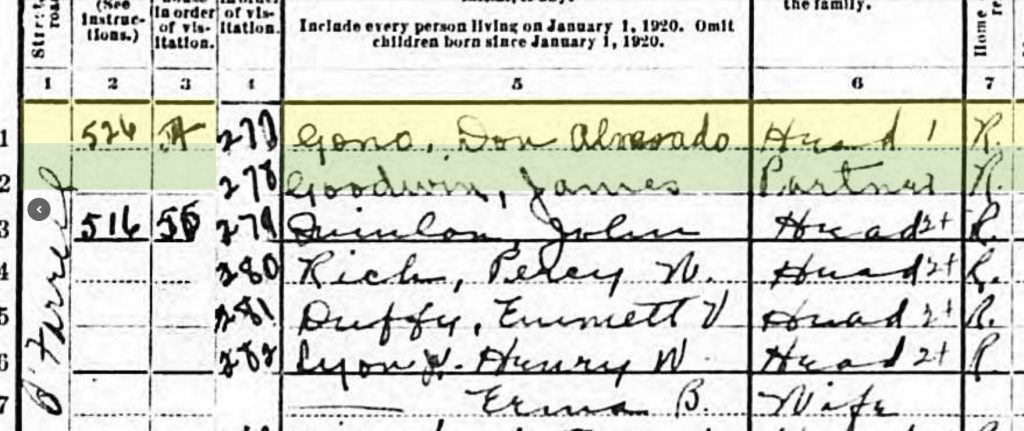 Street, road, (See instructions.) house in order of visitation. in order of visitation. the family. Home
Include every person living on January 1, 1920. Omit
children born since January 1, 1920.
1 2 3 4 5 6 7
1 526 277 Gono, Don Alverado Head 1 R.
2 278 Goodwin, James Partner R.
3 516 55 279 Quinlan, John Head 2+ R.
4 280 Rich, Percy W. Head 2+ R.
5 281 Duffy, Emmett V Head 2+ R.
6 282 Lyon Jr. Henry W. Head 2+ R
7 —— Erma B. Wife
O'Farrell